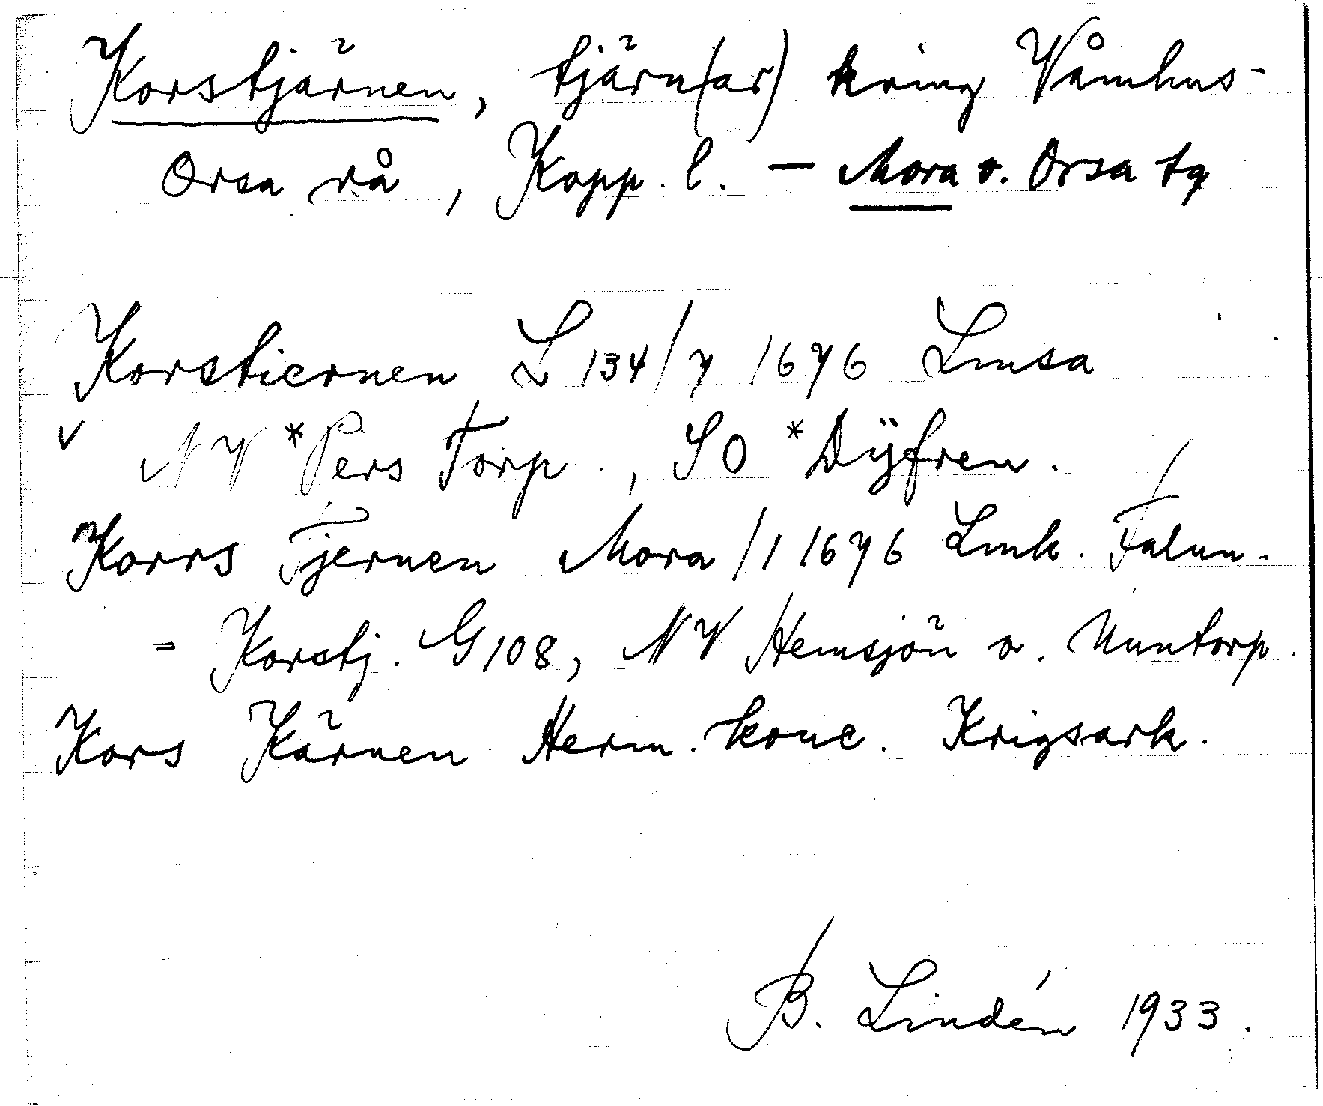 Korstjärnen, tjärn(ar) kring Våmhus-
Orsa rå, Kopp. l. – Mora o. Orsa tg
Korstiernen L 134/7 1676 Lmsa
v NV *Pers Torp., SO *Dÿfren.
Korrs Tjernen Mora /1 1676 Lmk. Falun.
- Korstj. G 108, NV Hemsjön o. Nuntorp.
Kors Kärnen Herm. konc. Krigsark.
B. Lindén 1933.